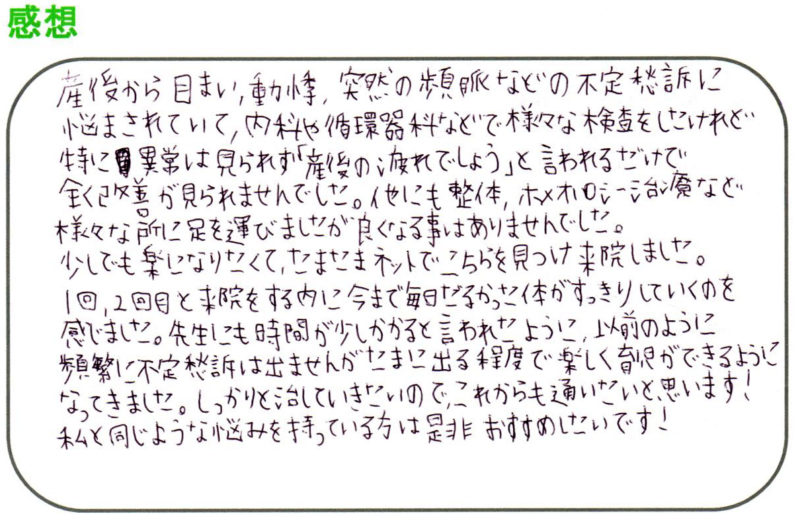 感想
産後から目まい,動悸,突然の頻脈などの不定愁訴に
悩まされていて,内科や循環器科などで様々な検査をしたけれど
特に異常は見られず「産後の疲れでしょう」と言われるだけで
全く改善が見られませんでした。他にも整体,ホメオパシー治療など
様々な所に足を運びましたが良くなる事はありませんでした。
少しでも楽になりたくて,たまたまネットでこちらを見つけ来院しました。
1回,2回目と来院をする内に今まで毎日だるかった体がすっきりしていくのを
感じました。先生にも時間が少しかかると言われたように,以前のように
頻繁に不定愁訴は出ませんがたまに出る程度で楽しく育児ができるように
なってきました。しっかりと治していきたいので,これからも通いたいと思います!
私と同じような悩みを持っている方は是非おすすめしたいです!